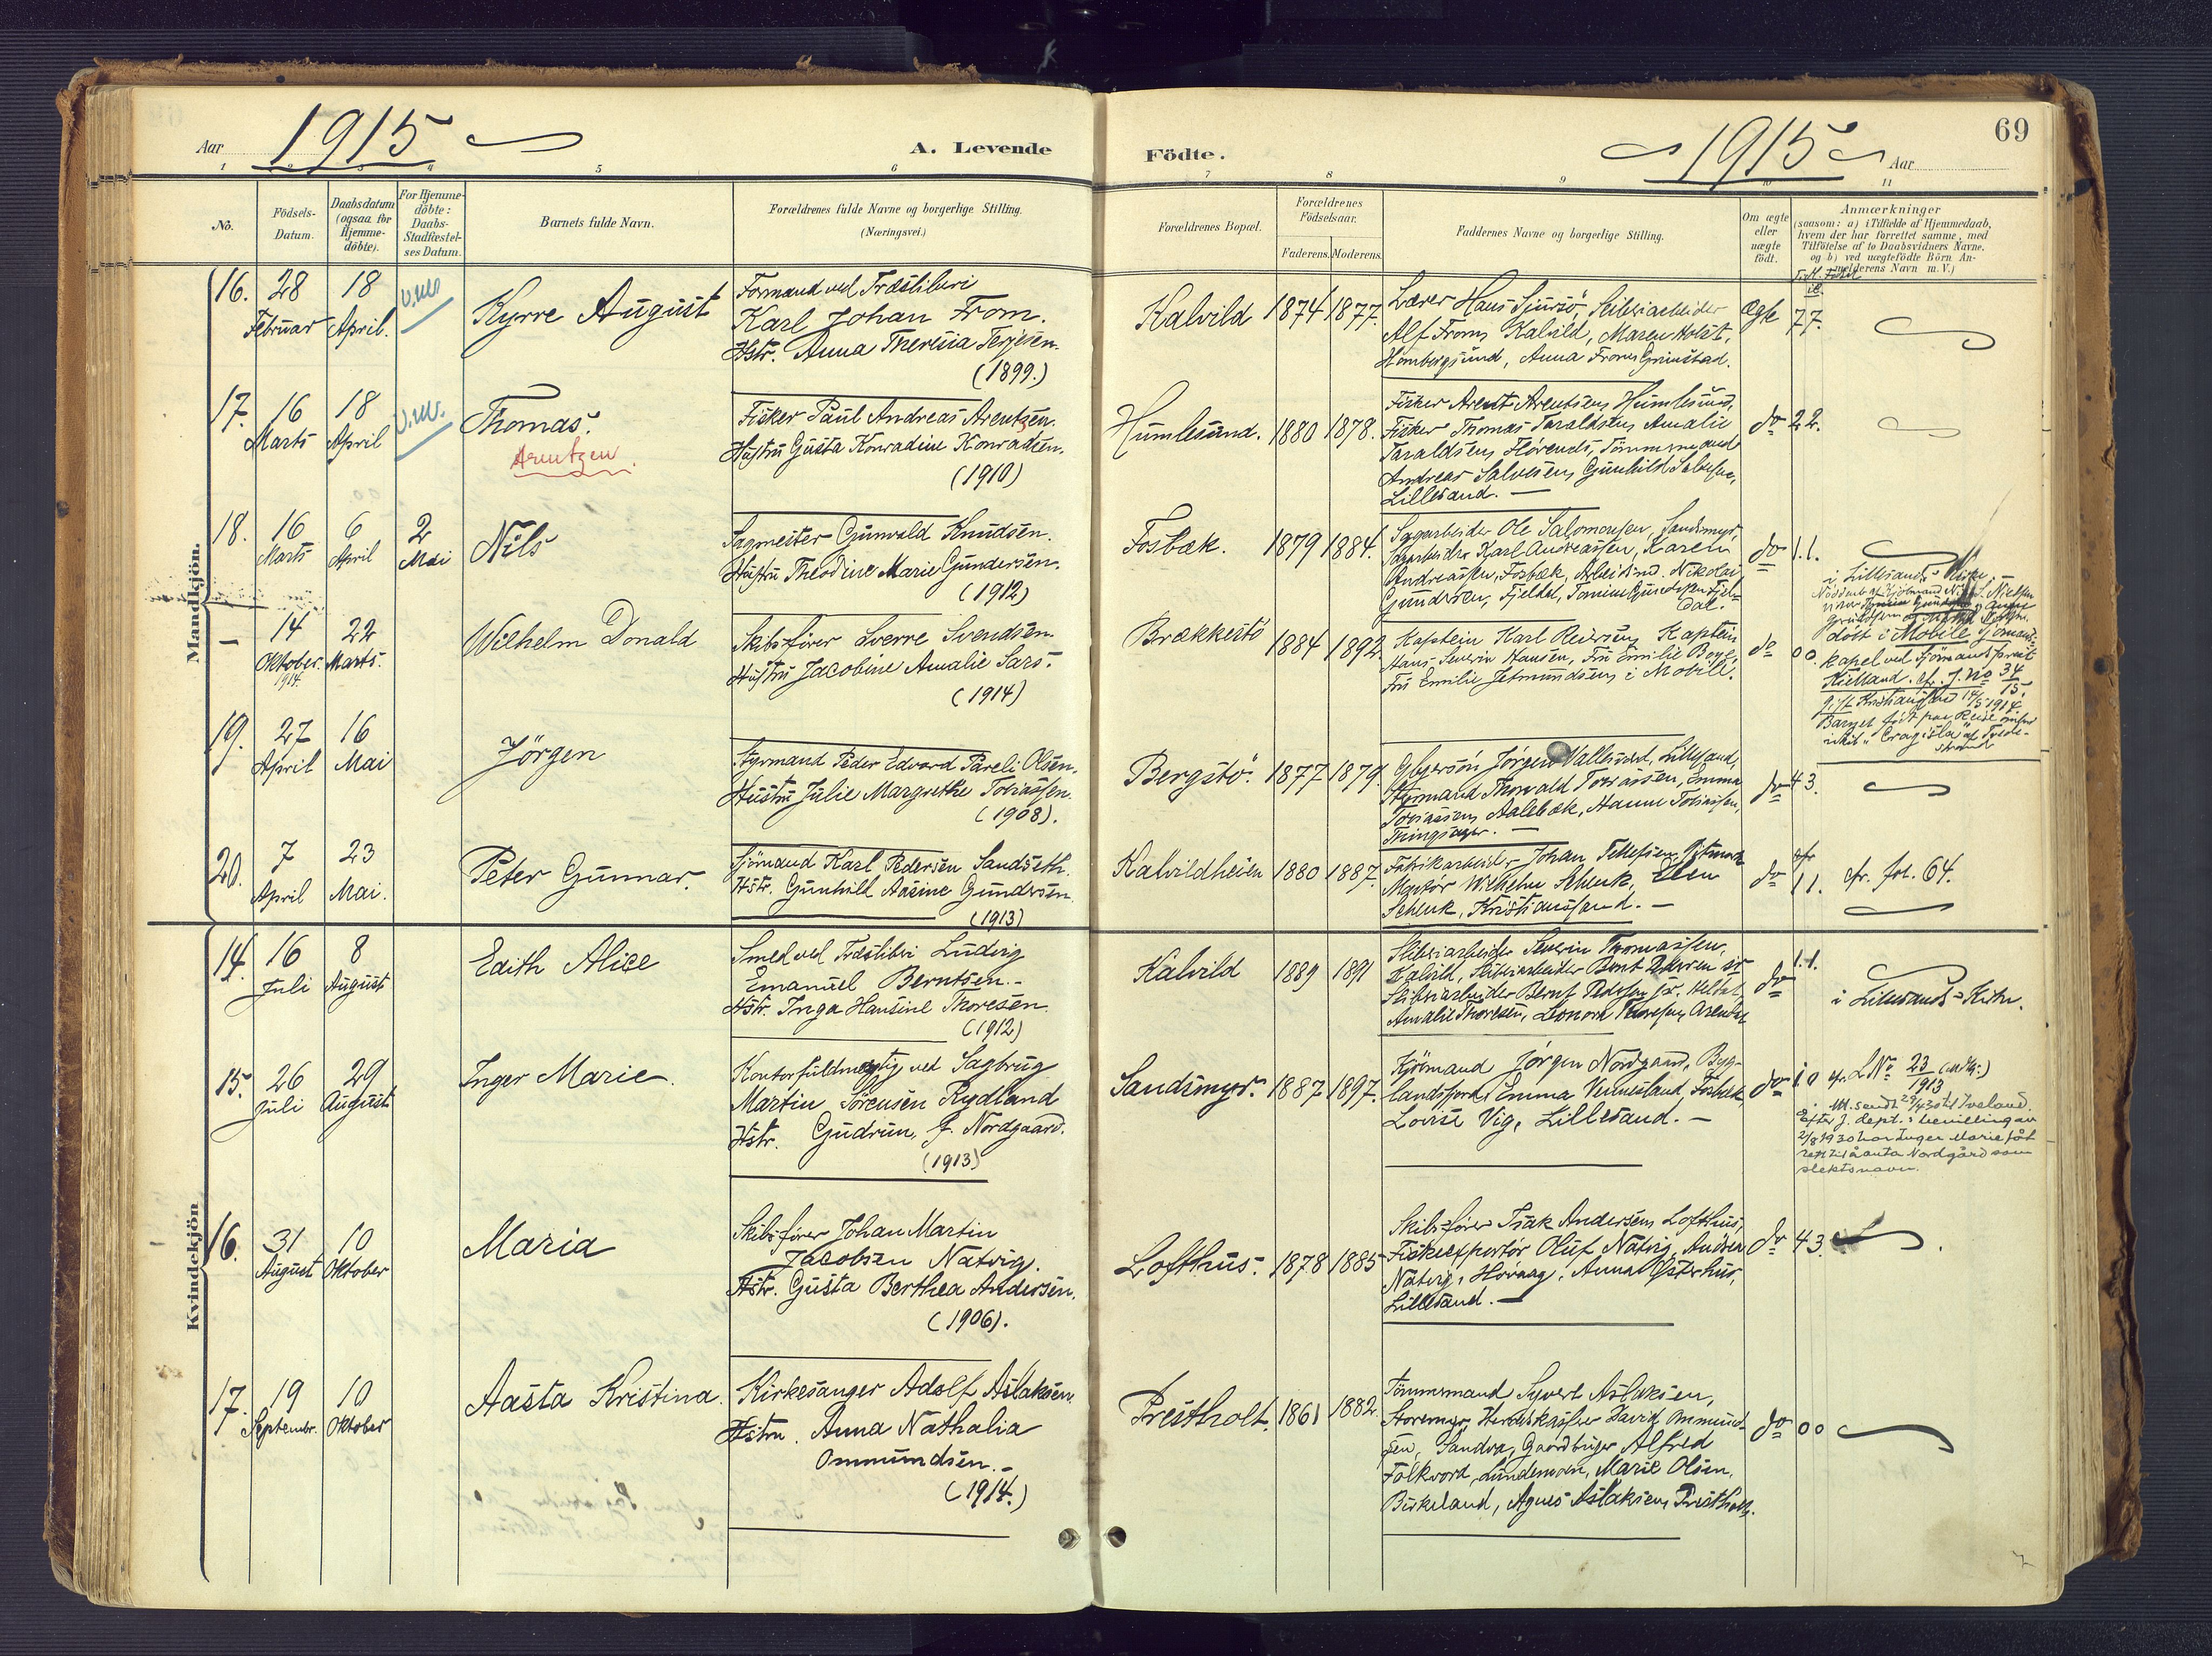 Aar 1915
A. Levende
Födte.
1915 Aar
69
1 2 3 4 5 6 7 8 9 10 11
No.
Födsels-
Datum.
Daabsdatum
(ogsaa for
Hjemme-
döbte).
For Hjemme-
döbte:
Daabs-
Stadfæstel-
ses Datum.
Barnets fulde Navn.
Forældrenes fulde Navne og borgerlige Stilling.
(Næringsvei.)
Forældrenes Bopæl.
Forældrenes
Födselsaar.
Faderens.
Moderens.
Faddernes Navne og borgerlige Stilling.
Om ægte
eller
uægte
födt.
Anmærkninger
(saasom: a) i Tilfælde af Hjemmedaab,
hvem der har forrettet samme, med
Tilföielse af to Daabsvidners Navne,
og b) ved uægtefödte Börn An-
melderens Navn m. V.)
Mandkjön.
16.
28
Februar
18
April.
Kyrre August
Formand ved Træsliberi
Karl Johan From.
Hstr. Anna Theresia Terjesen.
(1899.)
Kalvild
1874
1877.
Lærer Hans Sjursö, Sliberiarbeider
Alf From, Kalvild, Maren Holst,
Homborgsund, Anna From, Grimstad.
Ægte
77.
17.
16
Marts
18
April
Thomas.
Arentzen.
Fisker Paul Andreas Arentzen.
Hustru Gusta Konradine Konradsen.
(1910)
Humlesund.
1880
1878.
Fisker Arent Arentsen, Humlesund,
Fisker Thomas Taraldsen, Amalie
Taraldsen, Tømmermand
Andreas Salvesen, Gunhild Salvesen,
Lillesand. —
do
22.
18.
16
Marts
6
April
2
Mai
Nils
Sagmester Gunvald Knudsen.
Hustru Theodine Marie Gundersen.
(1912)
Fosbæk.
1879
1884.
Sagarbeider Ole Salomonsen, Sandsmyr,
Sagarbeider Karl Andreassen, Karen
Andreassen, Fosbæk, Arbeidsmd. Nikolai
Gundersen, Fjeldal, Tomine Gundersen Fjel-
dal.
do
1.1.
i Lillesands Kirke.
—
14
Oktober.
1914
22
Marts.
Wilhelm Donald
Skibsförer Sverre Svendsen
Hustru Jacobine Amalie Sars.
(1914)
Brækkestö
1884
1892
Kaptein Karl Reiersen, Kaptein
Hans Severin Hansen, Fru Emilie Boye,
Fru Emilie Jetmundsen i Mobile.
do
00.
døbt i Mobile Sjömands-
kapel ved Sjömandsprest
Kielland. cfr. J. No 34/15.
gift Kristiansand 14/5 1914
Barnet födt paa Reise
19.
27
April
16
Mai
Jörgen
Styrmand Peder Edvard Pareli Olsen.
Hustru Julie Margrethe Tobiassen.
(1908).
Bergstö.
1877
1879.
Jörgen Vallesverd, Lillesand,
Styrmand Thorvald Tobiassen, Emma
Tobiassen, Aalebæk, Hanne Tobiassen,
Thingsaker. —
do
43.
20.
7
April
23
Mai.
Peter Gunnar.
Sjömand Karl Pedersen Sandseth.
Hstr. Gunhild Aasine Gundersen.
(1913)
Kalvildheien
1880
1887.
Fabrikarbeider Johan Tellefsen,
Montör Wilhelm Schenk, Ellen
Schenk, Kristianssand. —
do
cfr
11.
cfr. fol. 64.
Kvindekjön
14.
16
Juli
8
August
Edith Alice
Smed ved Træsliberi Ludvig
Emanuel Berntsen.-
Hstr. Inga Hansine Thoresen.
(1912)
Kalvild
1889
1891
Sliberiarbeider Severin Thomassen,
Kalvild, Sliberiarbeider Bernt Pedersen sr
Sliberiarbeider Bernt Pedersen jr. Heldal,
Amalie Thoresen, Leonora Thoresen, Arendal
do
1.1.
i Lillesands-Kirke.
15.
26
Juli
29
August
Inger Marie.
Kontorfuldmegtig ved Sagbrug
Martin Sörensen Rydland
Hstr. Gudrun, f. Nordgaard.
(1913)
Sandsmyr.
1887
1897.
Kjörmand Jörgen Nordgaard, Byg-
landsfjord, Emma Vennesland, Fosbæk,
Lovise Vig, Lillesand. —
do
1.0
cfr. L No 23/1913
Utt. sendt 29/4 30 til Iveland.
Efter J. dept.s bevilling av
2/8 1930 har Inger Marie fått
rett til å anta Nordgård som
slektsnavn.
16.
31
August
10
Oktober
Maria
Skibsförer Johan Martin
Jacobsen Natvig.
Hstr. Gusta Berthea Andersen.
(1906).
Lofthus.
1878
1885
Skibsförer Isak Andersen, Lofthus,
Fiskeexportör Oluf Natvig, Andrea
Natvig, Hövaag, Anna Österhus,
Lillesand. —
do
43.
17.
19
Septembr.
10
Oktober
Aasta Kristina.
Kirkesanger Adolf Aslaksen.
Hstru. Anna Nathalia
Ommundsen.-
(1914.)
Prestholt.
1861
1882.
Tömmermand Syvert Aslaksen,
Storemyr, Herredskasserer David Ommund-
sen, Sandva, Gaardbruger Alfred
Folkvord, Lundemoen, Marie Olsen,
Birkeland, Agnes Aslaksen, Prestholt.
do
00